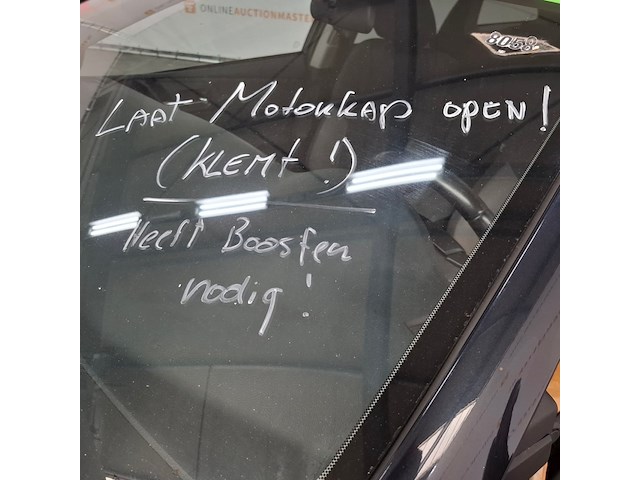 ONLINEAUCTIONMASTER
8058
LAAT MOTORKAP OPEN!
(KLEMT!)
Heeft Booster
nodig!